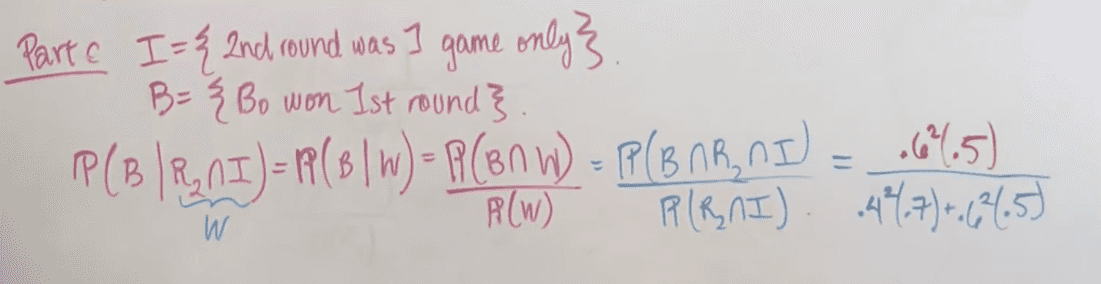 Part c I={2nd round was I game only}.
B= {Bo won Ist round}.
P(B|R₂∩I)=P(B|W)=P(B∩W)/P(W) = P(B∩R₂∩I)/P(R₂∩I). = .6²(.5)/.4²(.7)+.6²(.5)
W